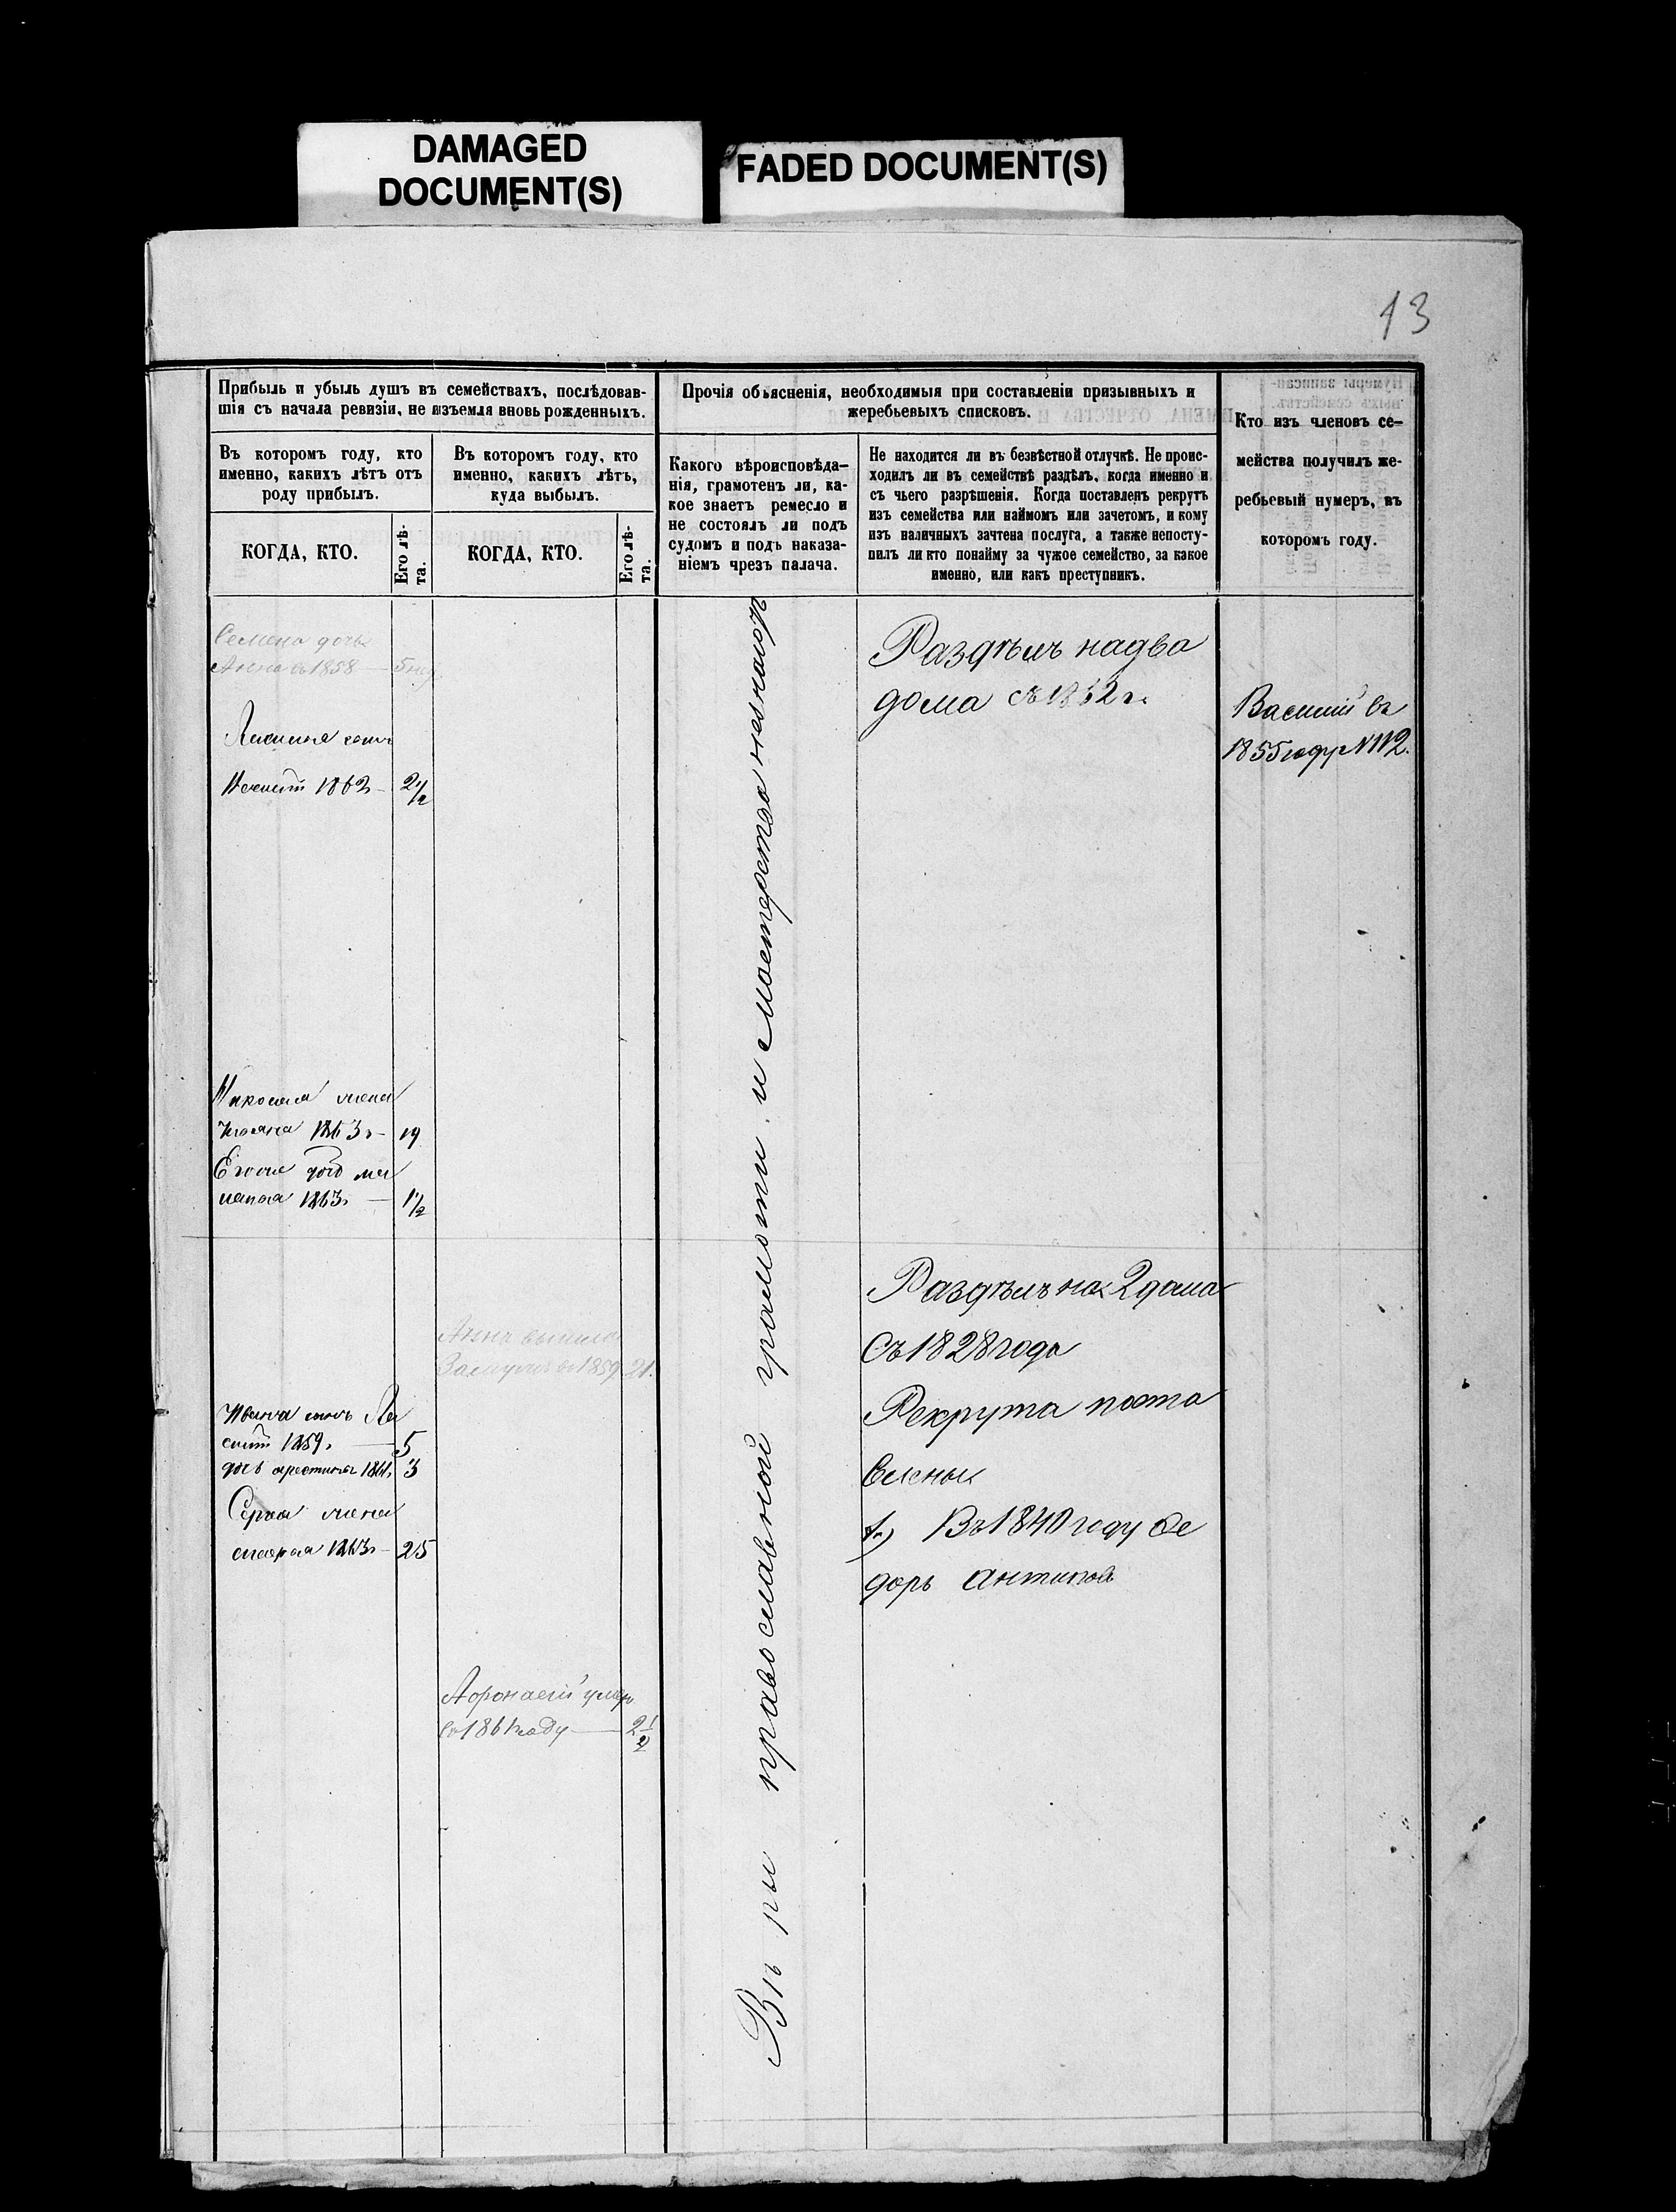 DAMAGED
DOCUMENT(S)
FADED DOCUMENT(S)
13
Прибыль и убыль душъ въ семействахъ, послѣдовав-
шія съ начала ревизіи, не изъемля вновь рожденныхъ.
Прочія объясненія, необходимыя при составленіи призывныхъ и
жеребьевыхъ списковъ.
Кто изъ членовъ се-
мейства получилъ же-
ребьевый нумеръ, въ
которомъ году.
Въ которомъ году, кто
именно, какихъ лѣтъ отъ
роду прибылъ.
Въ которомъ году, кто
именно, какихъ лѣтъ,
куда выбылъ.
Какого вѣроисповѣда-
нія, грамотенъ ли, ка-
кое знаетъ ремесло и
не состоялъ ли подъ
судомъ и подъ наказа-
ніемъ чрезъ палача.
Не находится ли въ безвѣстной отлучкѣ. Не проис-
ходилъ ли въ семействѣ раздѣлъ, когда именно и
съ чьего разрѣшенія. Когда поставленъ рекрутъ
изъ семейства или наймомъ или зачетомъ, и кому
изъ наличныхъ зачтена послуга, а также непосту-
пилъ ли кто понайму за чужое семейство, за какое
именно, или какъ преступникъ.
КОГДА, КТО.
Его лѣ-
та.
КОГДА, КТО.
Его лѣ-
та.
Семена дочь
Анна въ 1858 — 5 нед
сынъ
1862 — 2 1/2
жена
1863 г — 19
1863 г — 1 1/2
Ивана сынъ
1859 г — 5
дочь 1861 г 3
жена
1863 г — 25
Анна вышла
Замужъ въ 1859 21.
Афонасий умеръ
въ 1861 году — 2 1/2
Вѣры православной грамоти и мастерства не знаютъ
Раздѣлъ на два
дома съ 1832 г.
Василий въ
1855 году №112.
Раздѣлъ на 2 дома
Съ 1828 года
Рекрута поста
влены
1.) Въ 1840 году Фе
доръ Антиповъ